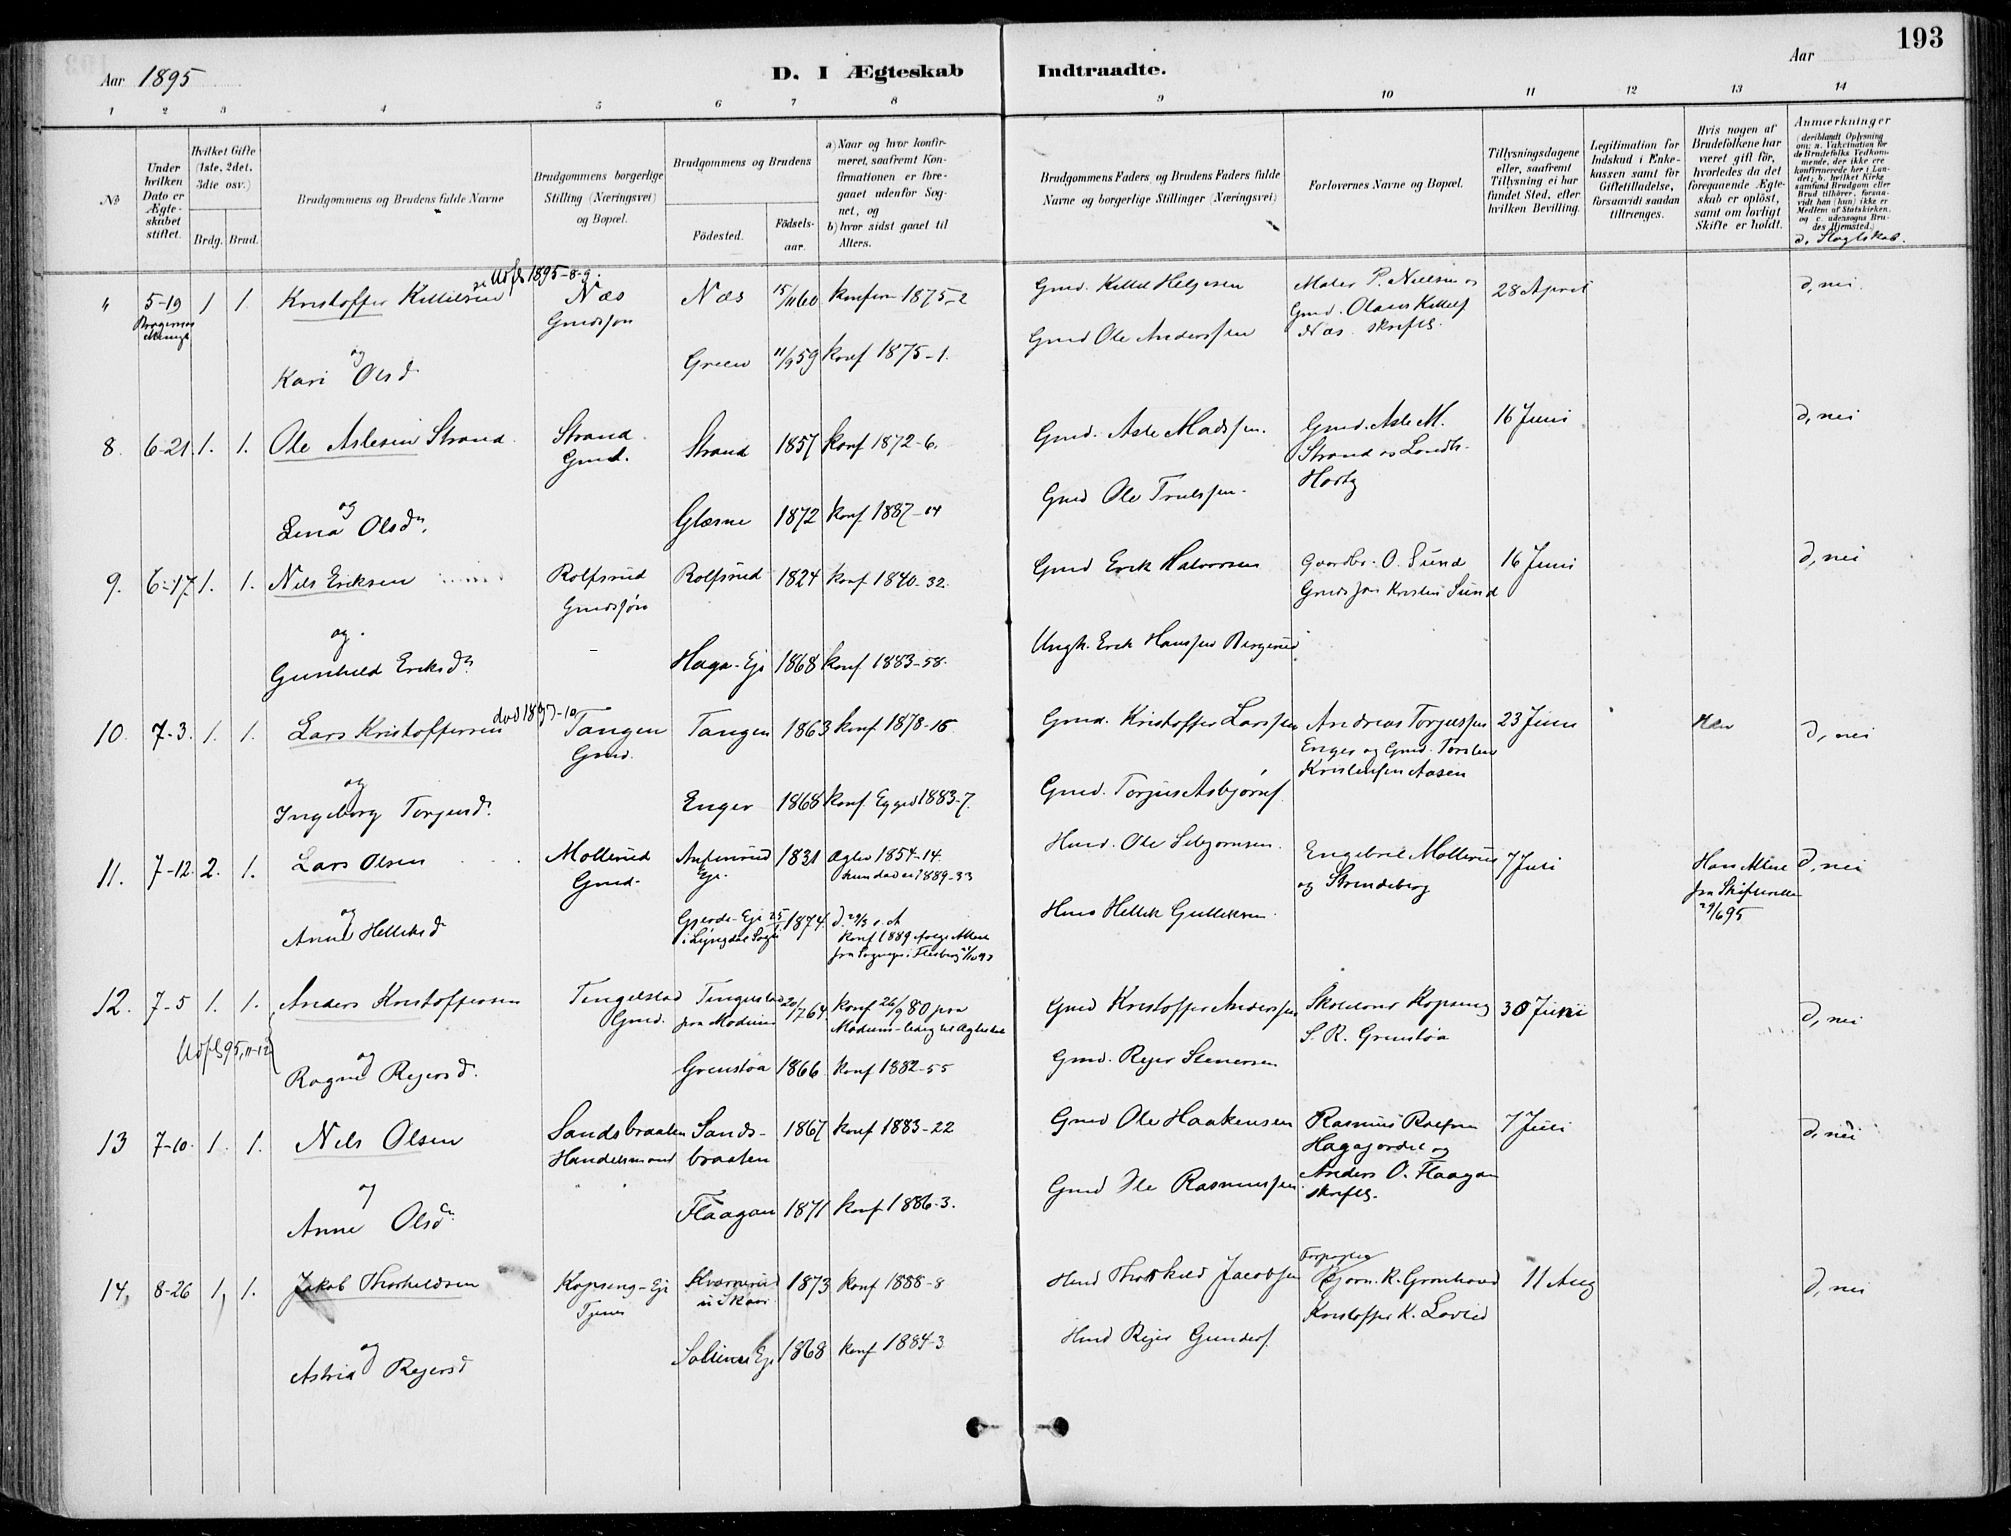 193
Aar 1895
D. I Ægteskab Indtraadte.
Aar
1 2 3 4 5 6 7 8 9 10 11 12 13 14
№
Under hvilken Dato er Ægteskabet stiftet.
Hvilket Gifte (1ste, 2det, 3die osv.)
Brdg. Brud.
Brudgommens og Brudens fulde Navne
Brudgommens borgerlige Stilling (Næringsvei) og Bopæl.
Brudgommens og Brudens
Fødested.
Fødselsaar.
a) Naar og hvor konfirmeret, saafremt Konfirmationen er foregaaet udenfor Sognet, og
b) hvor sidst gaaet til Alters.
Brudgommens Faders og Brudens Faders fulde Navne og borgerlige Stillinger (Næringsvei)
Forlovernes Navne og Bopæl.
Tillysningsdagene eller, saafremt Tillysning ei har fundet Sted, efter hvilken Bevilling.
Legitimation for Indskud i Enkekassen samt for Gifletilladelse, forsaavidt saadan tiltrænges.
Hvis nogen af Brudefolkene har været gift før, hvorledes da det foregaaende Ægteskab er opløst, samt om lovligt Skifte er holdt.
Anmærkninger
(deriblandt Oplysning om: a. Vakcination for de Brudefolks Vedkommende, der ikke ere konfirmerede her i Landet; b. hvilket Kirkesamfund Brudgom eller Brud tilhører, forsaavidt han (hun) ikke er Medlem af Statskirken, og c. udensogns Brudes Hjemsted.)
d, Slægtskab.
" 5-19 1 1. Kristoffer Kittilsen Udfl 1895-8-9. Næs Næs 15/11 60 konfirm 1875-2 Gmd. Kittil Helgesen Maler P. Nielsen og 28 April d, nei.
Bragernes Gmdsøn Gmd. Olaus Kittils
Gmd Ole Anderssen Næs. skriftl.
og
Kari Olsd Green 11/9 59 konf 1875-1.
8. 6-21 1. 1. Ole Aslesen Strand Strand Strand 1857 konf 1872-6. Gmd. Asle Madssen. Gmd. Asle M. 16 Juni d, nei
Gmd. Strand og Landh.
og Hartz
Lina Olsdr. Glesne 1872 konf 1887-14 Gmd Ole Trulssen.
9. 6-17 1. 1. Nils Eriksen Rolfsrud Rolfsrud 1824 konf 1840-32. Gmd Erik Halvorsen Gaardbr. O. Sund 16 Juni d, nei
Gmdssøn Gmdssøn Kristen Sund
og.
Gunhild Eriksdr Haga-Eje 1868 konf 1883-58. Ungk. Erik Hanssen Bergerud
10. 7-3. 1. 1. Lars Kristoffersen død 1897-10 Tangen Tangen 1863 konf 1878-16 Gmd. Kristoffer Larssen Andreas Torjussen 23 Juni d, nei
Gmd. Enger og Gmd. Torsten
og Kristensen Aasen
Ingeborg Torjusdr. Enger 1868 konf. Eggedal 1883-7. Gmd. Torjus Asbjørns.
11. 7-12. 2. 1. Lars Olsen Mollerud 1831 1854-14. Hmd. Ole Sebjørnsen. Engebret Mollerud 7 Juli Han Attest d, nei
Gmd. Eje. hun død 1889-33 og Strandeberg fra Skifteretten
og 29/6 95
Anne Helliksd Gjerde-Eje 25 1874. Hans Hellik Gulliksen.
i Lyngdal Sogn konf 1889
12. 7-5 1. 1. Anders Kristoffersen Tingelstad Tingelstad 20/7 64 konf 26/9 80 paa Gmd Kristoffer Anderssen Kopseng 30 Juni d, nei
Gmd. paa Modum Modum-ledig til Ægteskab S. R. Grenstøa
Udfl 95, 11-12 og
Ragne Rejersd. Grenstøa 1866 konf 1882-55 Gmd. Rejer Steenersen
13 7-10. 1. 1. Nils Olsen Sandsbraaten Sands- 1867 konf 1883-22 Gmd Ole Haakensen Rasmus Rolfsen 7 Juli d, nei
Handelsmand braaten Hagajordet og
og Anders O. Flaagan
Anne Olsdr. Flaagan 1871 konf 1886-3. Gmd Ole Rasmussen. skriftl.
14. 8-26 1, 1. Jakob Thorkildsen Kopseng-Eje Kværnerud 1873 konf 1888-8 Hmd Thorkild Jacobssen Forpagter 11 Aug d, nei
Tjener Bjørn. K. Grønhovd
og Kristoffer K. Lovlid
Astrid Rejersd Eje 1868 konf 1884-3 Hmd Rejer Gunders.